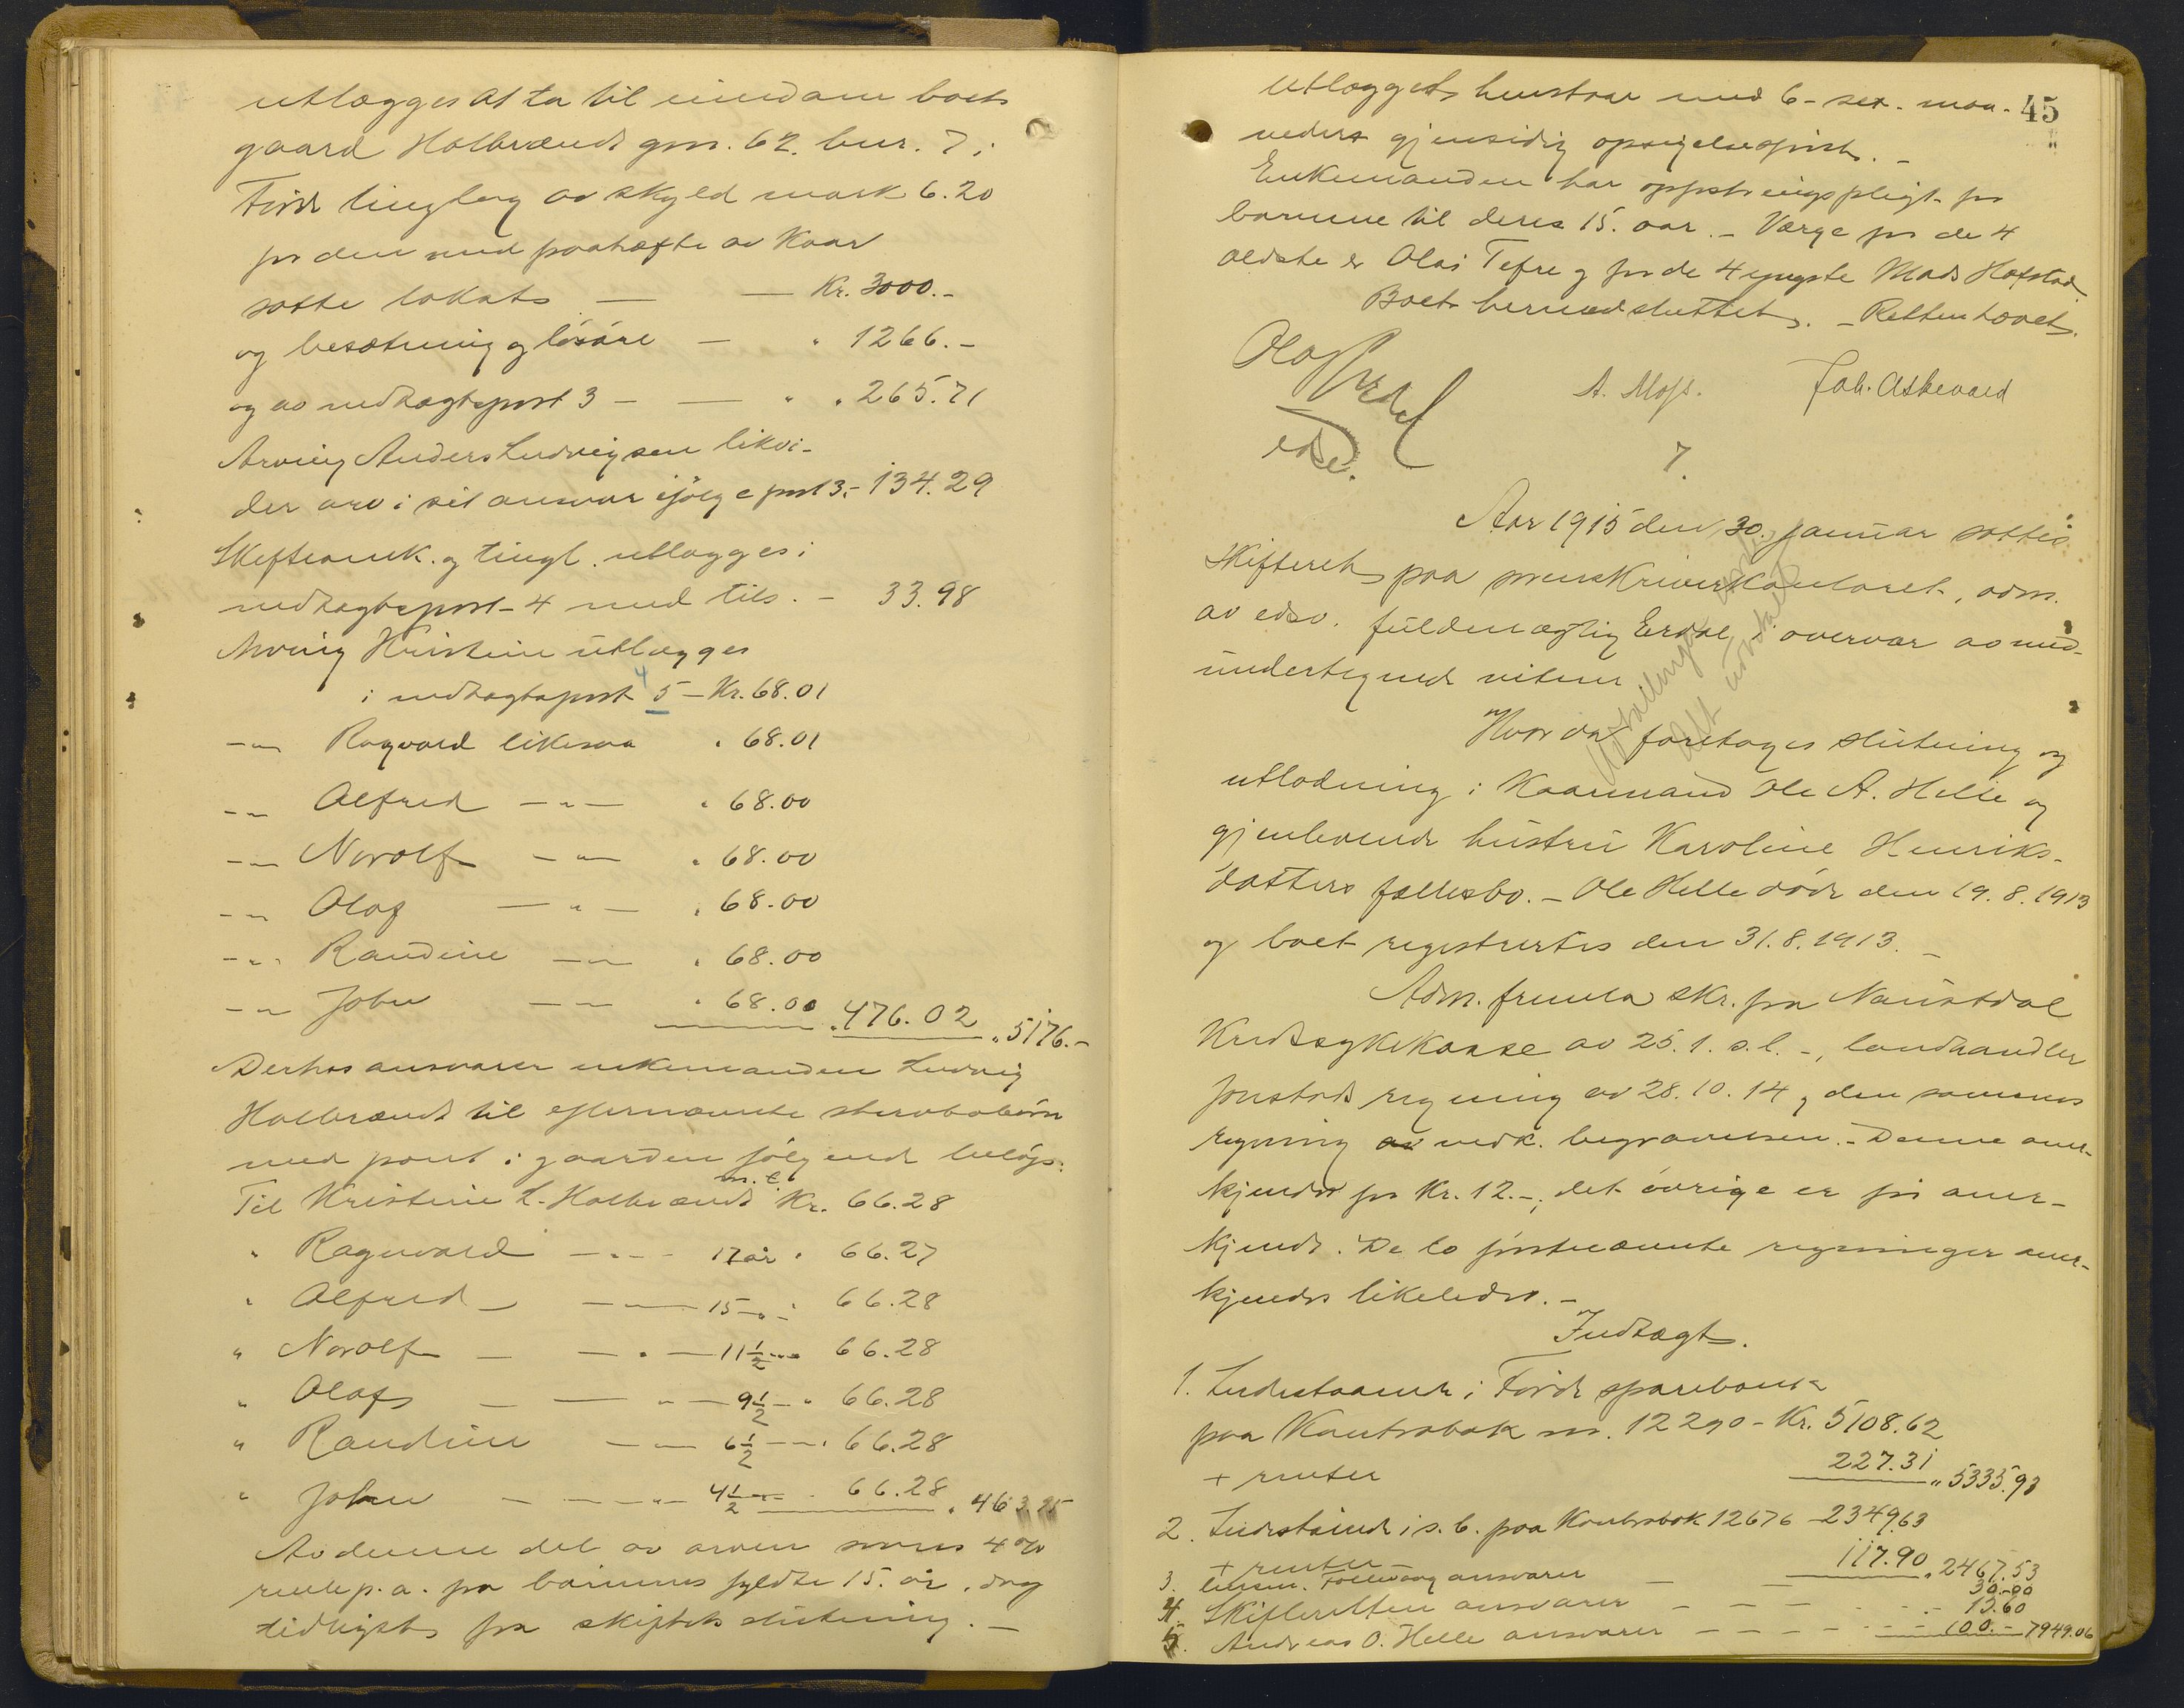 utlægges at ta til eiendom boets
gaard Halbrændt gnr. 62. bnr. 7 i
Førde tinglag av skyld mark 6.20
for den med paahæfte av Kaar
satte takst — — Kr. 3000.-
og besætning og løsøre — " 1266.-
og av indtægtspost 3 — — " " 265.71
Arving Anders Ludvigsen likvi-
der arv i sit ansvar ifølge post 3.- 134.29
Skifteomk. og tingl. utlægges i
indtægtspost 4 med tils. - 33.98
Arving Kristine utlægges
i indtægtspost 4 5 - Kr. 68.01
-"- Ragvald likesaa " 68.01
-"- Alfred -"- " 68.00
-"- Norolf -"- " 68.00
-"- Olaf -"- " 68.00
-"- Raudine -"- " 68.00
-"- John -"- " 68.00 " 476.02 " 5176.-
Derhos ansvarer enkemanden Ludvig
Halbrændt til efternævnte stervbobørn
med pant i gaarden følgende beløp:
Til Kristine L. Halbrændt m. t. Kr. 66.28
" Ragnvald -"- 17 år " 66.27
" Alfred - -"- 15 -"- " 66.28
" Norolf - -"- 11½ -"- 66.28
" Olaf - -"- 9½ - " 66.28
" Raudine -"- 6½ -"- 66.28
" John - -"- 4½ -"- 66.28 " 463.95
Av denne del av arven svares 4 %
rente p. a. fra børnenes fyldte 15. år, dog
tidligst fra skiftets slutning. -
45
utlægget henstaar med 6 - sex - maa-
neders gjensidig opsigelsesfrist. -
Enkemanden har opfostringspligt for
børnene til deres 15. aar. - Værge for de 4
ældste er Olai Tefre og for de 4 yngste Mads Hafstad.
Boet hermed sluttet. - Retten hævet.
Olaf Erdal
edsv.
A. Moss.
Joh. Askevold
7.
Aar 1915 den 30. januar sattes
Skifteret paa sorenskriverkontoret, adm.
av edsv. fuldmægtig Erdal, i overvær av med-
undertegnede vitner
Hvorda foretages slutning og
utlodning i Kaarmand Ole A. Helle og
gjenlevende hustru Karoline Henriks-
datters fællesbo. - Ole Helle døde den 19.8.1913
og boet registrertes den 31.8.1913. -
Adm. fremla skr. fra Naustdal
Kredssykekasse av 25.1. s.l. -, landhandler
Jonstads regning av 28.10.14, den sammes
regning av vedk. begravelsen. - Denne aner-
kjendes for Kr. 12.-, det øvrige er før aner-
kjendt. De to førstnævnte regninger aner-
kjendes likeledes. -
Indtægt.
1. Indestaaende i Førde sparebank
paa Kontrabok nr. 12290 - Kr. 5108.62
+ renter 227.31 " 5335.93
2. Indestående i s. b. paa Kontrabok 12676 - 2349.63
+ renter - 117.90 " 2467.53
3. ansvarer — — 30.00
4. Skifteretten ansvarer - - - - 15.60
5. Andreas O. Helle ansvarer - - - - 100.- 7949.06